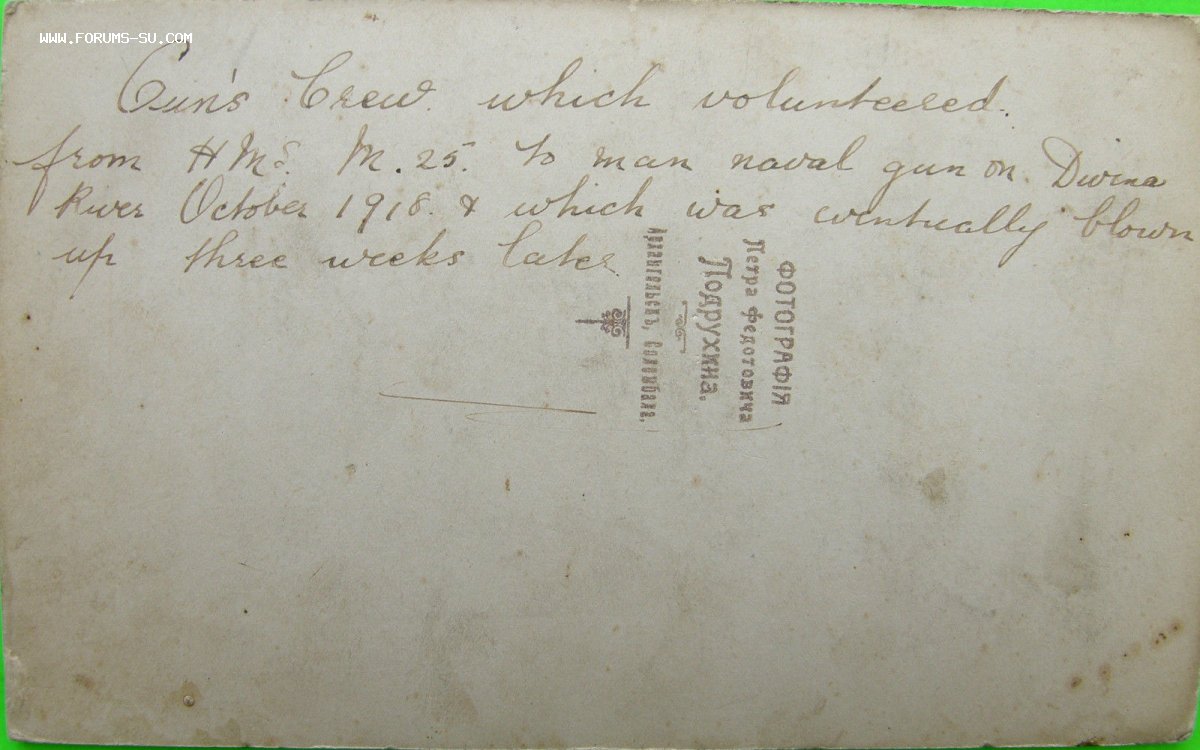 WWW.FORUMS-SU.COM
Gun's Crew. which volunteered.
from HMS. M. 25. to man naval gun on Dwina
River October 1918. & which was eventually blown
up three weeks later.
ФОТОГРАФІЯ
Петра Федотовича
Подружина.
Архангельскъ, Соломбала,